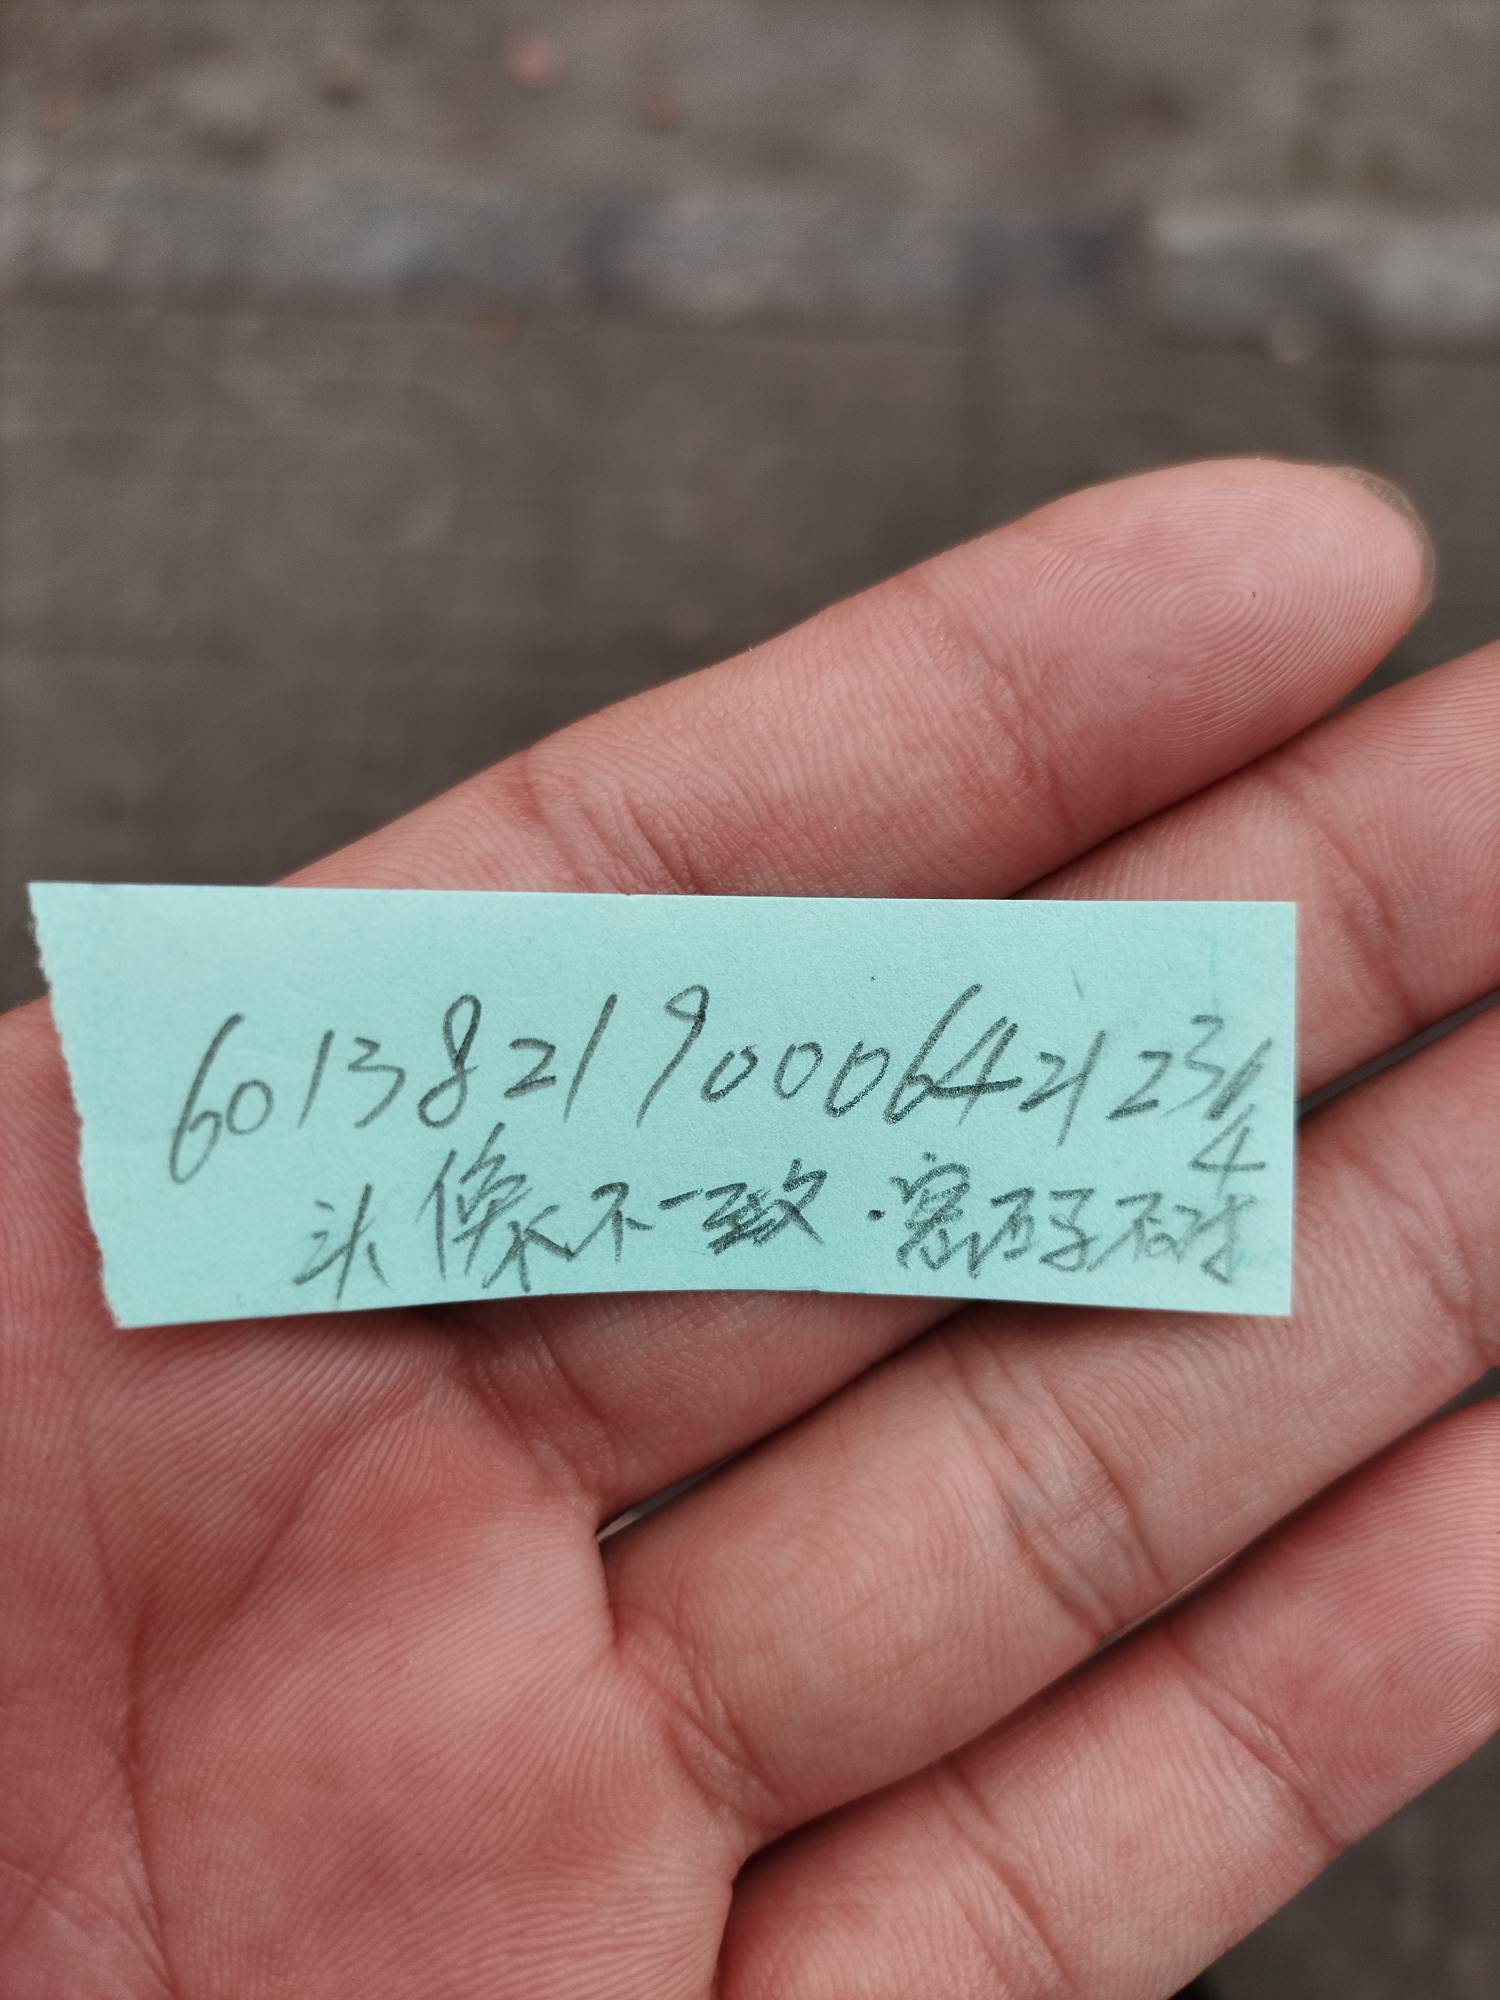 6013821900064212314
头像不一致.密码不对